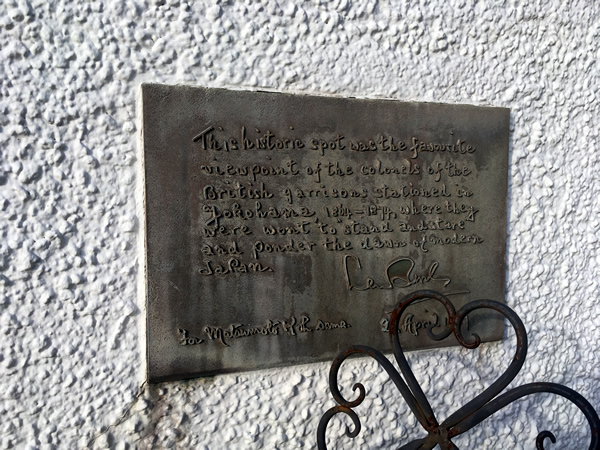 This historic spot was the favourite
viewpoint of the colonels of the
British garrisons stationed in
Yokohama, 1864-1874, where they
were wont to stand and stare
and ponder the dawn of modern
Japan.
For Matsumoto
April